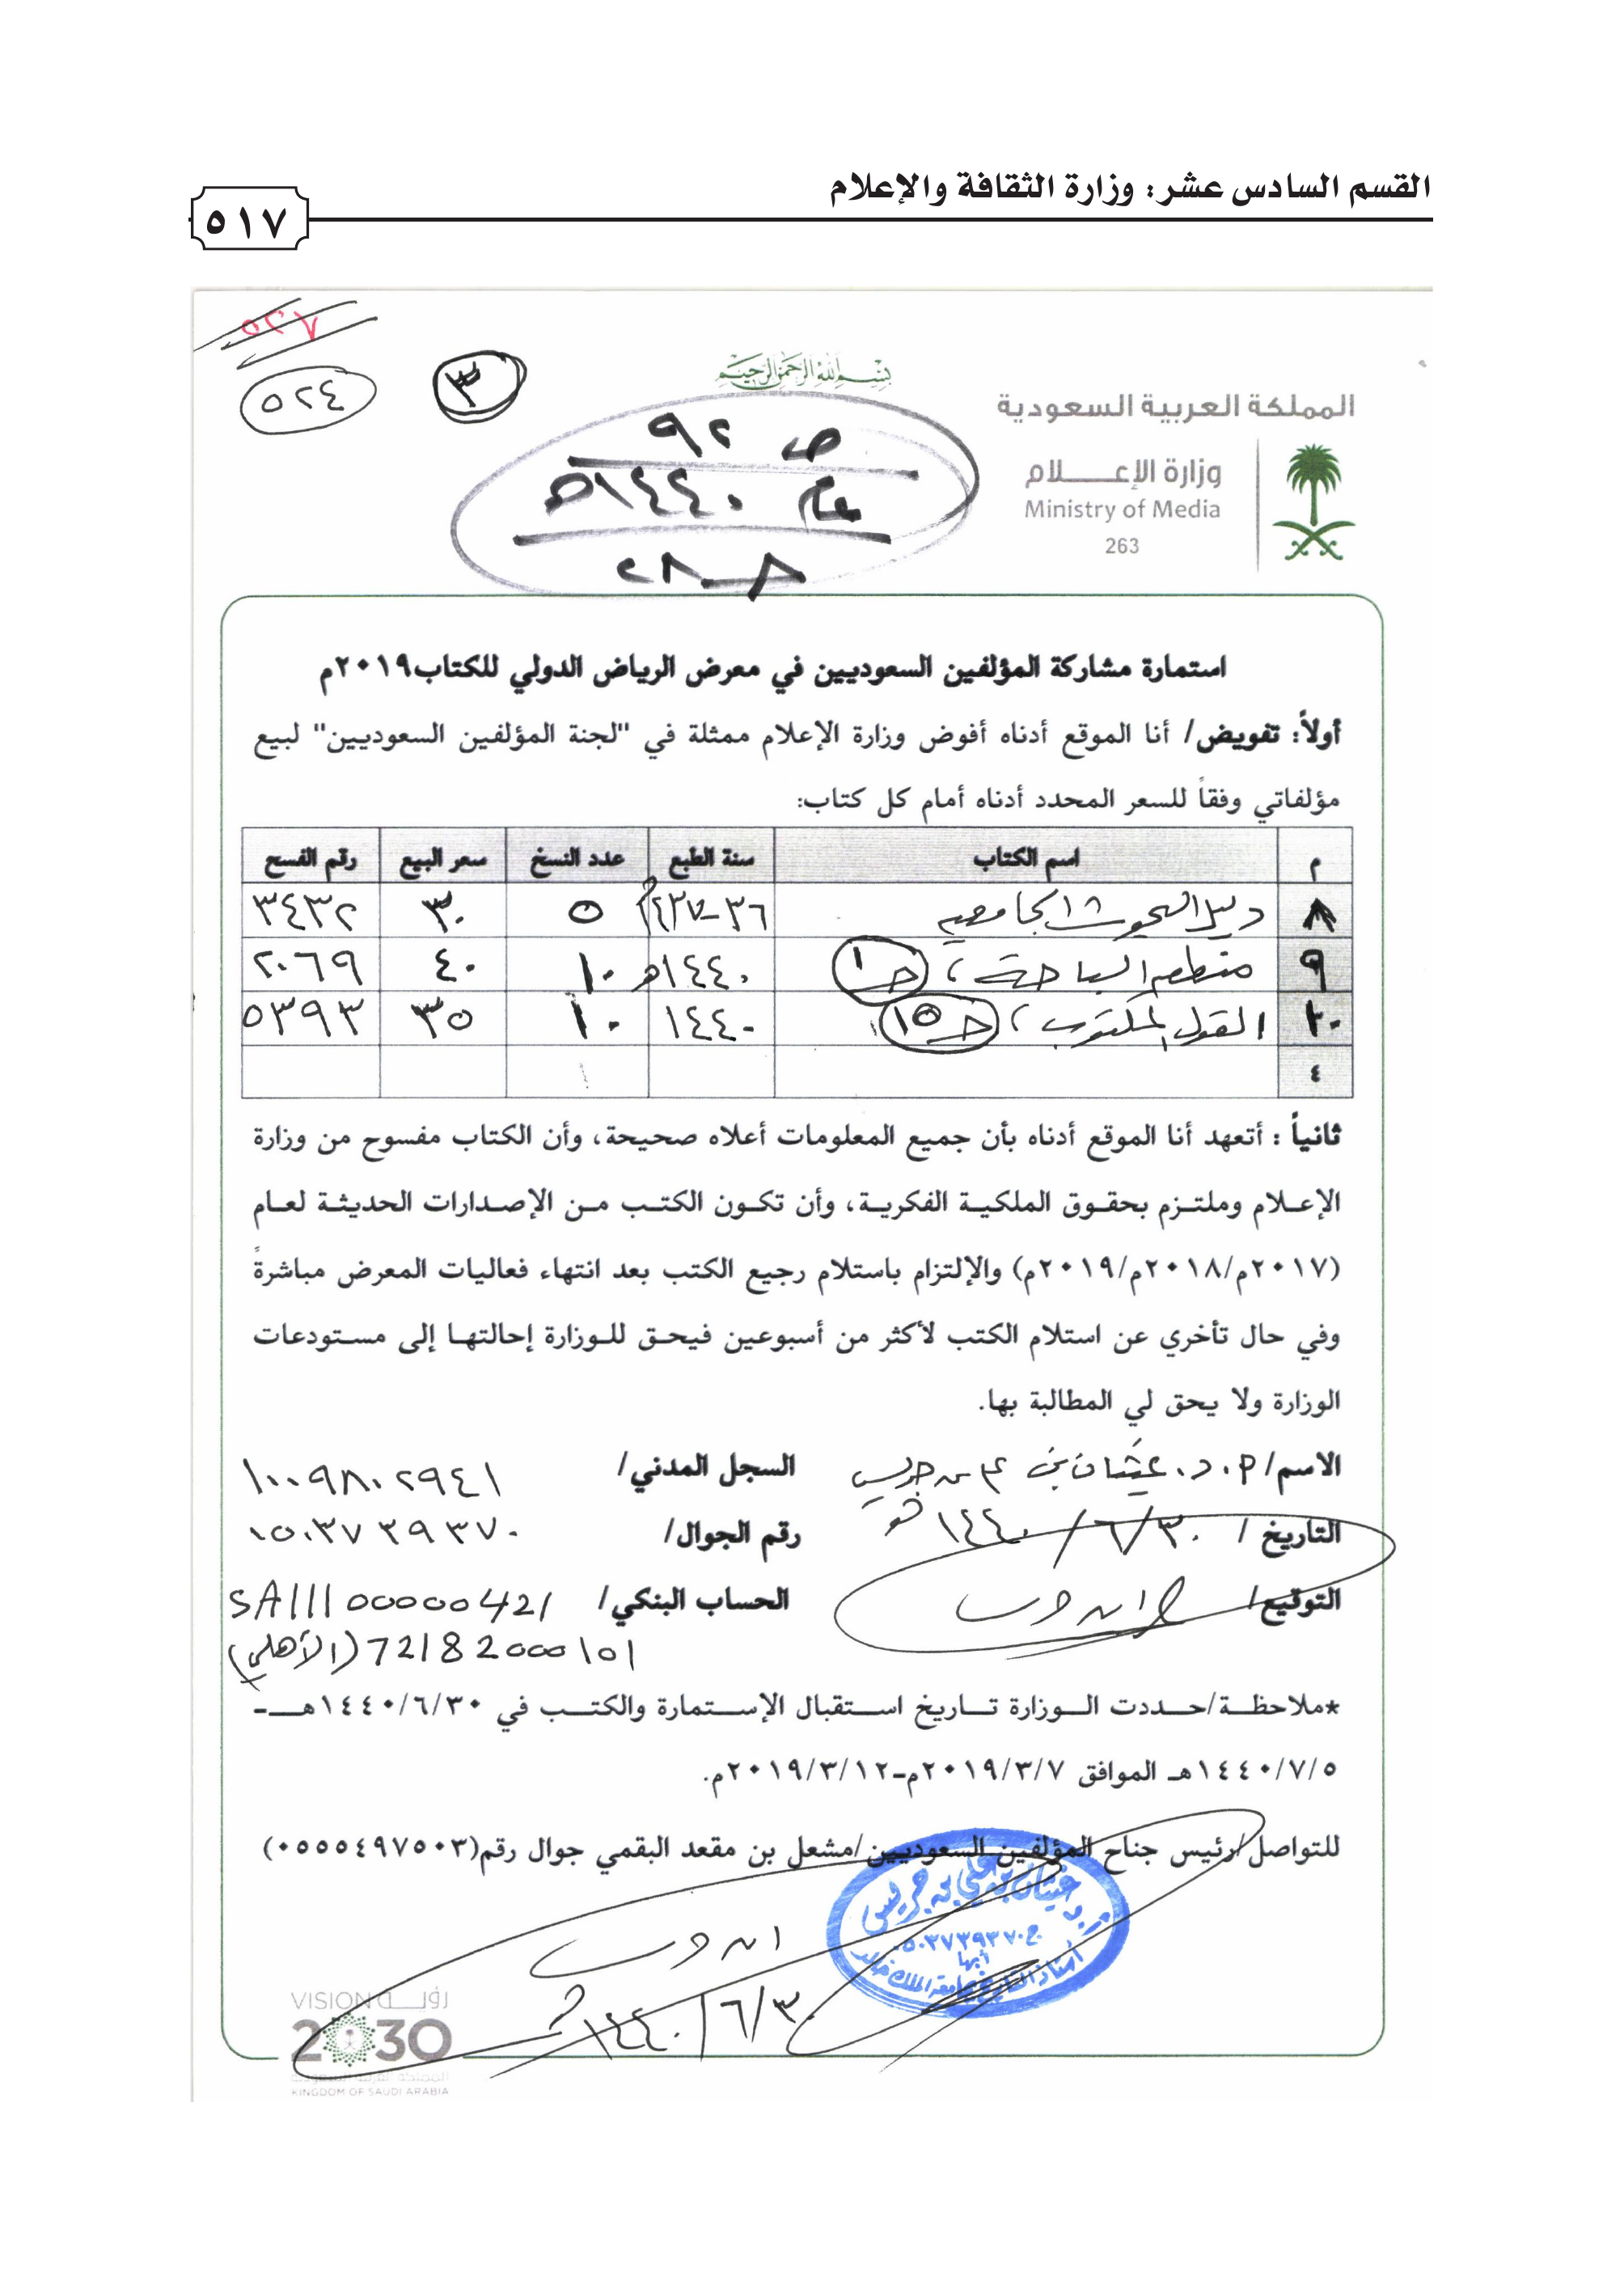 القسم السادس عشر: وزارة الثقافة والإعلام
٥١٧
٥٢٧
٥٢٤
٣
بسم الله الرحمن الرحيم
ص ٩٢
عام ١٤٤٠هـ
المملكة العربية السعودية
وزارة الإعـــــلام
Ministry of Media
263
استمارة مشاركة المؤلفين السعوديين في معرض الرياض الدولي للكتاب٢٠١٩م
أولاً: تفويض/ أنا الموقع أدناه أفوض وزارة الإعلام ممثلة في "لجنة المؤلفين السعوديين" لبيع
مؤلفاتي وفقاً للسعر المحدد أدناه أمام كل كتاب:
م اسم الكتاب سنة الطبع عدد النسخ سعر البيع رقم الفسح
٨ البحوث الجامعية ٥ ٣٠ ٣٤٣٢
٩ منطقة الباحة، جـ١ ١٤٤٠هـ ١٠ ٤٠ ٢٠٦٩
١٠ القول المكتوب، جـ١٥ ١٤٤٠ ١٠ ٣٥ ٥٣٩٣
٤
ثانياً : أتعهد أنا الموقع أدناه بأن جميع المعلومات أعلاه صحيحة، وأن الكتاب مفسوح من وزارة
الإعـلام وملتـزم بحقـوق الملكيـة الفكريـة، وأن تكـون الكتـب مـن الإصـدارات الحديثـة لعـام
(٢٠١٧م/٢٠١٨م/٢٠١٩م) والإلتزام باستلام رجيع الكتب بعد انتهاء فعاليات المعرض مباشرةً
وفي حال تأخري عن استلام الكتب لأكثر من أسبوعين فيحـق للـوزارة إحالتهـا إلى مسـتودعات
الوزارة ولا يحق لي المطالبة بها.
الاسم/ أ.د. غيثان بن علي بن جريس السجل المدني/ ١٠٠٩٨٠٢٩٤١
التاريخ / ٣٠/٦/١٤٤٠ رقم الجوال/ ٠٥٠٣٧٣٩٣٧٠
التوقيع/ الحساب البنكي/ SA11100000421
72182000101 (الأهلي)
*ملاحظـة/حـددت الـوزارة تـاريخ اسـتقبال الإسـتمارة والكتـب في ١٤٤٠/٦/٣٠هــ-
١٤٤٠/٧/٥هـ الموافق ٢٠١٩/٣/٧م-٢٠١٩/٣/١٢م.
للتواصل/رئيس جناح المؤلفين السعوديين/مشعل بن مقعد البقمي جوال رقم(٠٥٥٥٤٩٧٥٠٣)
أ.د. غيثان بن علي بن جريس
ج ٠٥٠٣٧٣٩٣٧٠
أبها
أستاذ التاريخ بجامعة الملك خالد
٣٠/٦/١٤٤٠
VISION رؤيـــة
2030
المملكة العربية السعودية
KINGDOM OF SAUDI ARABIA